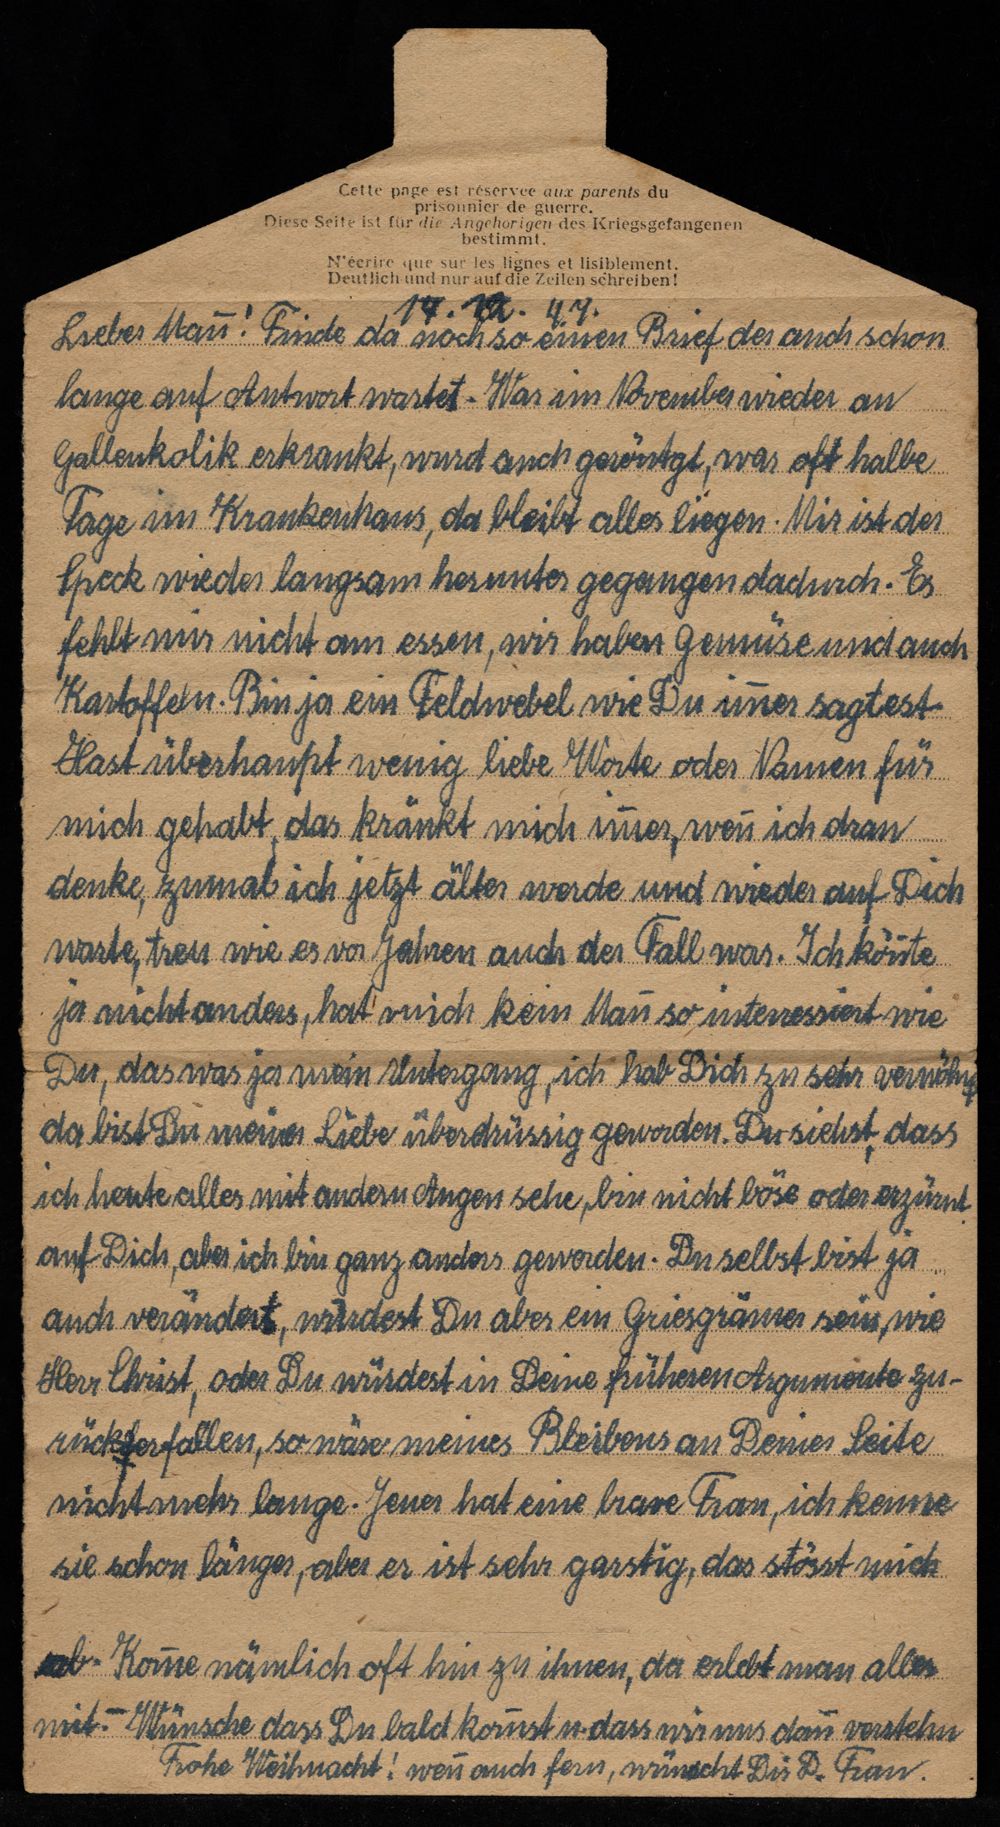 Cette page est réservée aux parents du
prisonnier de guerre.
Diese Seite ist für die Angehörigen des Kriegsgefangenen
bestimmt.
N'écrire que sur les lignes et lisiblement.
Deutlich und nur auf die Zeilen schreiben!
17. 12. 47.
Lieber Man̄! Finde da noch so einen Brief der auch schon
lange auf Antwort wartet. War im November wieder an
Gallenkolik erkrankt, wurd auch geröntgt, war oft halbe
Tage im Krankenhaus, da bleibt alles liegen. Mir ist der
Speck wieder langsam herunter gegangen dadurch. Es
fehlt mir nicht am essen, wir haben Gemüse und auch
Kartoffeln. Bin ja ein Feldwebel wie Du im̄er sagtest.
Hast überhaupt wenig liebe Worte oder Namen für
mich gehabt, das kränkt mich im̄er, wen̄ ich dran
denke, zumal ich jetzt älter werde und wieder auf Dich
warte, treu wie es vor Jahren auch der Fall war. Ich kön̄te
ja nicht anders, hat mich kein Man̄ so interressiert wie
Du, das war ja mein Untergang, ich hab Dich zu sehr verwöhnt
da bist Du meiner Liebe überdrüssig geworden. Du siehst, dass
ich heute alles mit andern Augen sehe, bin nicht böse oder erzürnt
auf Dich, aber ich bin ganz anders geworden. Du selbst bist ja
auch verändert, würdest Du aber ein Griesgrämer sein, wie
Herr Christ, oder Du würdest in Deine früheren Argumente zu-
rückferfallen, so wäre meines Bleibens an Deiner Seite
nicht mehr lange. Jener hat eine brave Frau, ich kenne
sie schon länger, aber er ist sehr garstig, das stösst mich
ab. Kom̄e nämlich oft hin zu ihnen, da erlebt man alles
mit. – Wünsche dass Du bald kom̄st u. dass wir uns dan̄ verstehn
Frohe Weihnacht! wen̄ auch fern, wünscht Dir D. Frau.